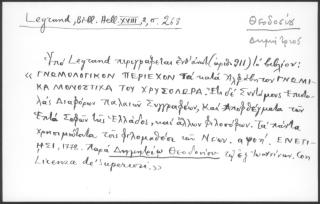 Legrand, Bibl. Hell. XVIII, 2, σ. 263
Θεοδοσίου
Δημήτριος
Ὑπὸ Legrand περιγράφεται ἐνταῦθα (ἀριθ. 911) τὸ βιβλίον:
« ΓΝΩΜΟΛΟΓΙΚΟΝ ΠΕΡΙΕΧΟΝ Τὰ κατὰ Ἀλφάβητον ΓΝΩΜΙ-
ΚΑ ΜΟΝΟΣΤΙΚΑ ΤΟΥ ΧΡΥΣΟΛΩΡΑ. Ἔτι δὲ Συντόμους Ἐπιστο-
λὰς Διαφόρων παλαιῶν Συγγραφέων, καὶ Ἀποφθέγματα τῶν
Ἑπτὰ Σοφῶν τῆς Ἑλλάδος, καὶ ἄλλων φιλοσόφων. Τὰ πάντα
χρησιμώτατα τοῖς φιλομαθέσι τῶν Νέων. ΕΝΕΤΙ-
ΗΣΙ, Παρὰ Δημητρίῳ Θεοδοσίου τῷ ἐξ Ἰωαννίνων. Con
Licenza de' Superiori. »